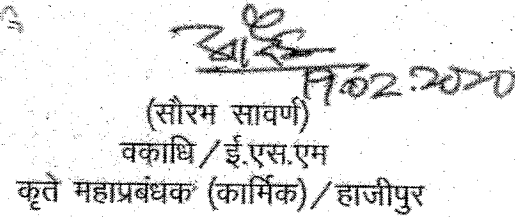 19.02.2020
(सौरभ सावर्ण)
वकाधि / ई.एस.एम
कृते महाप्रबंधक (कार्मिक) / हाजीपुर